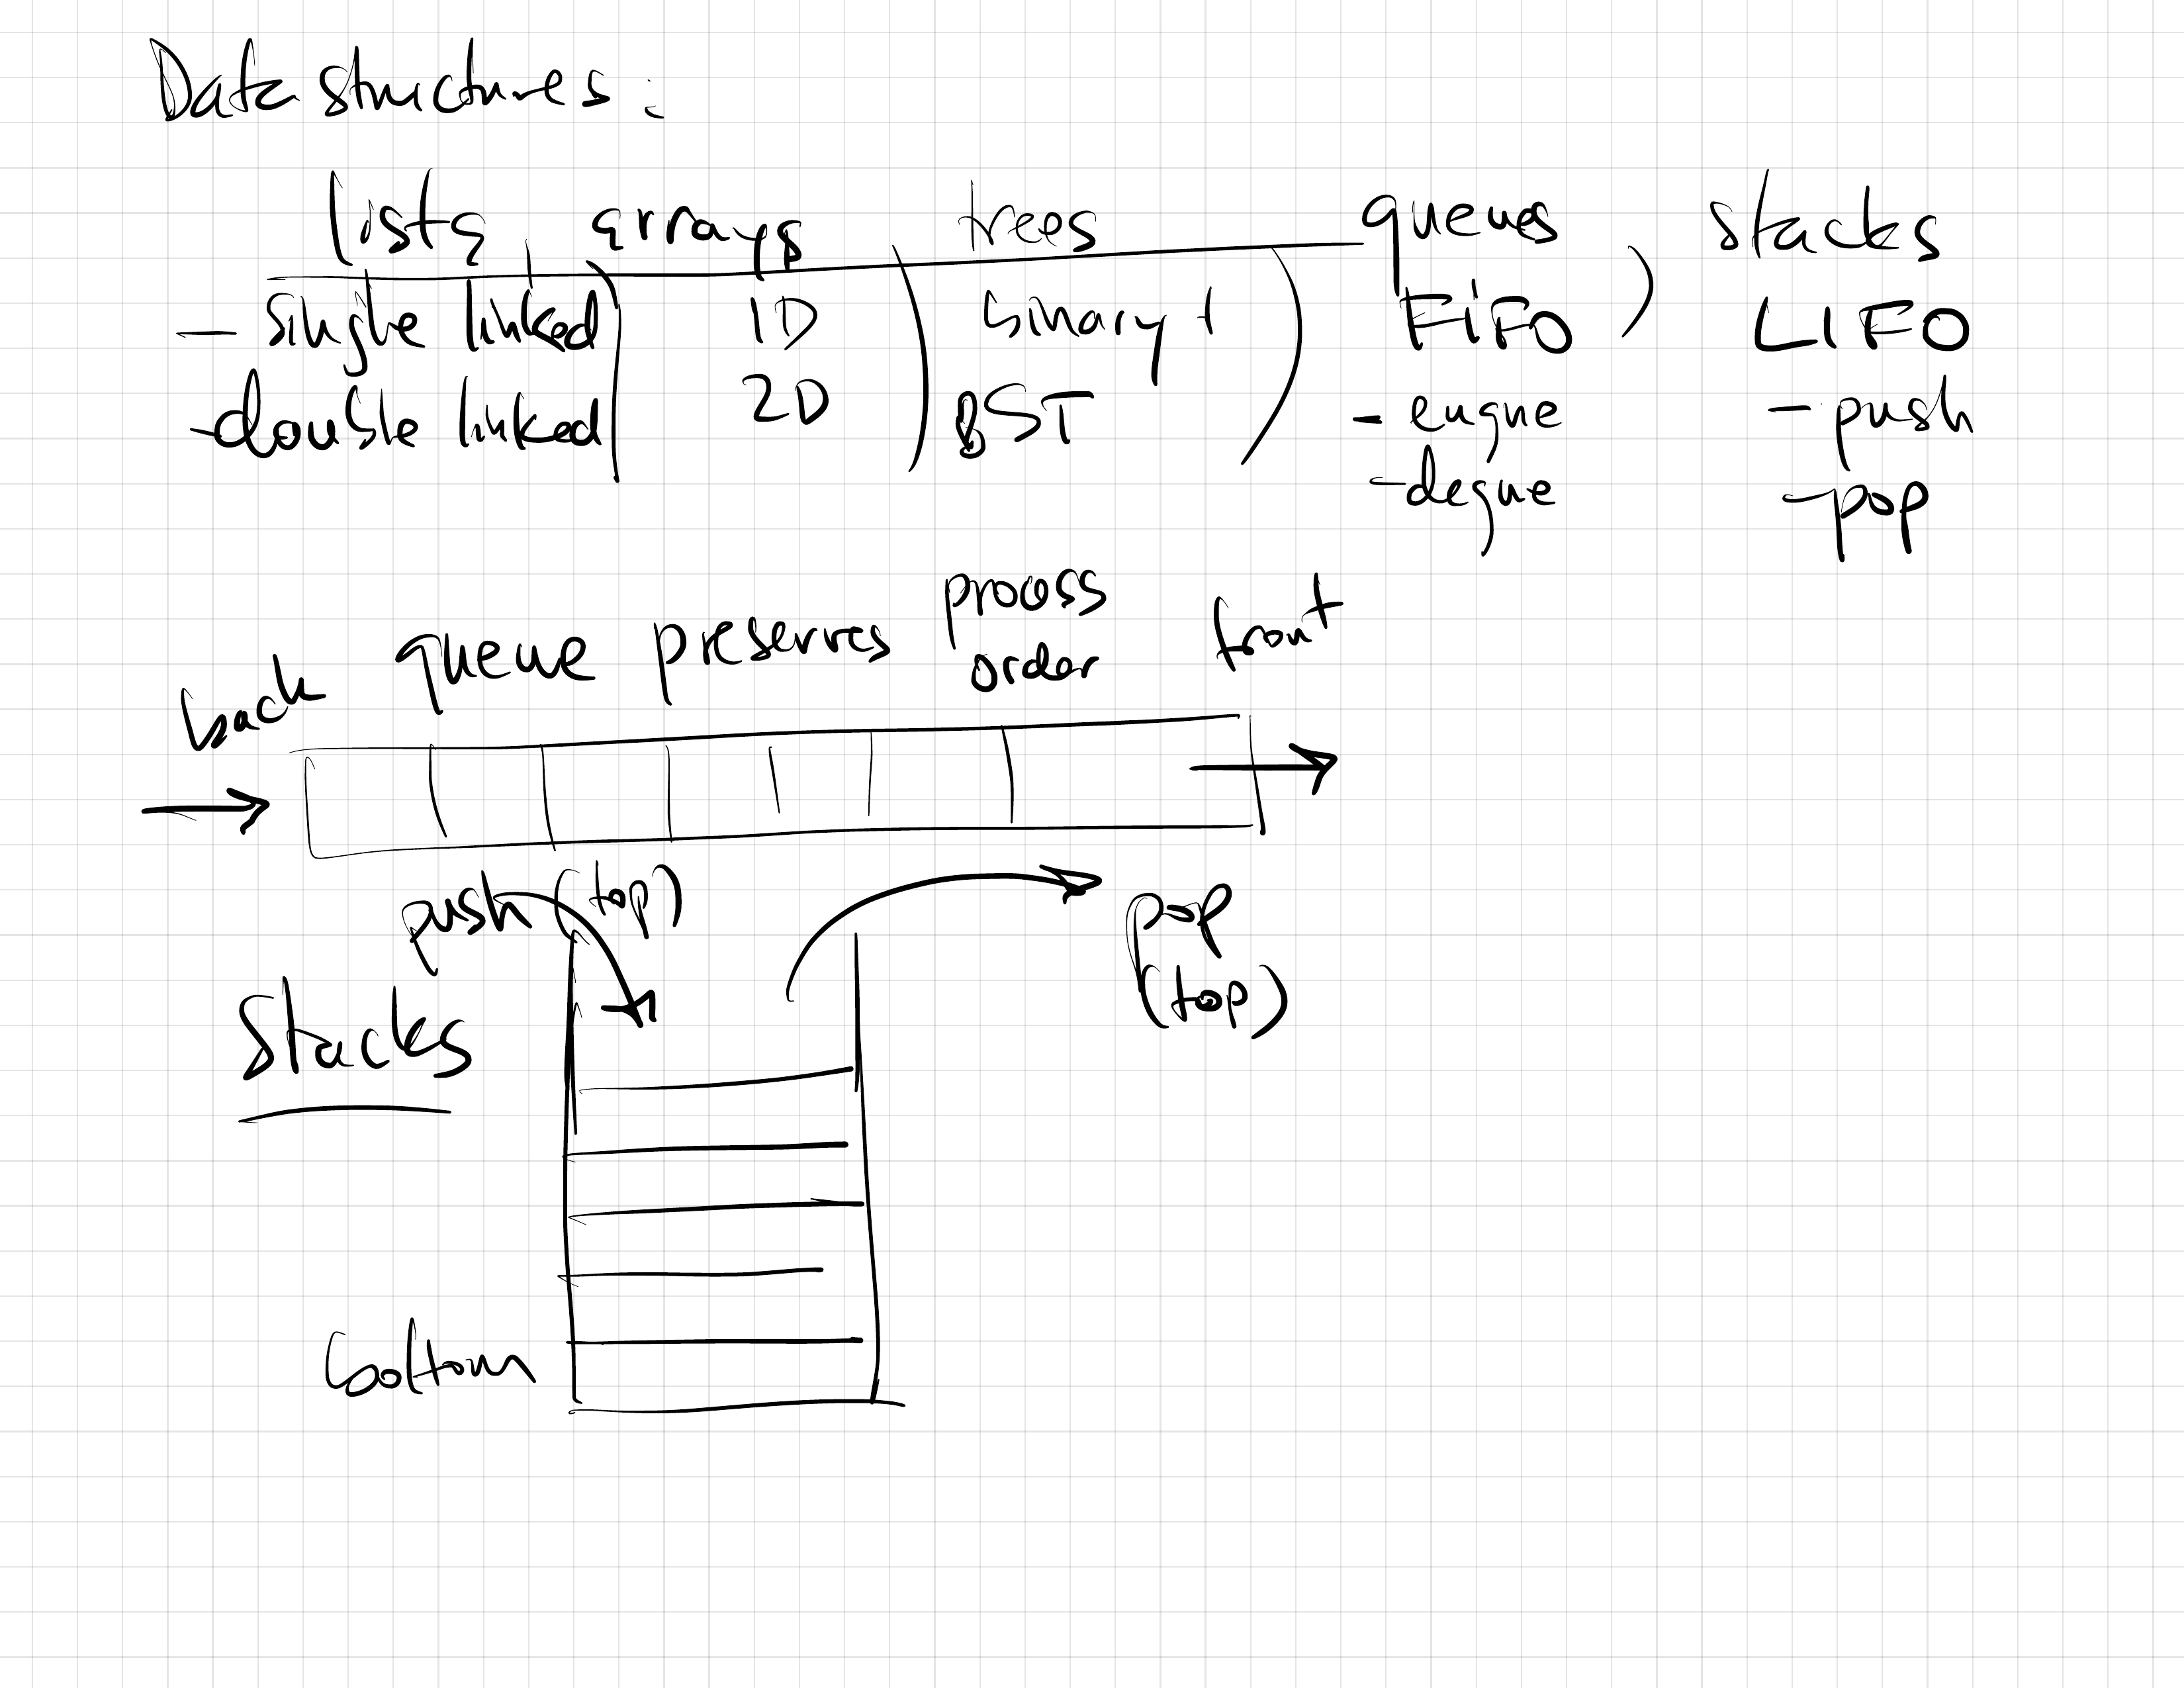 Data structures:
lists, arrays trees queues stacks
- single linked 1D binary t FIFO, LIFO
- double linked 2D BST - euque - push
- deque - pop
process
back queue preserves order front
push (top)
pop
(top)
Stacks
bottom